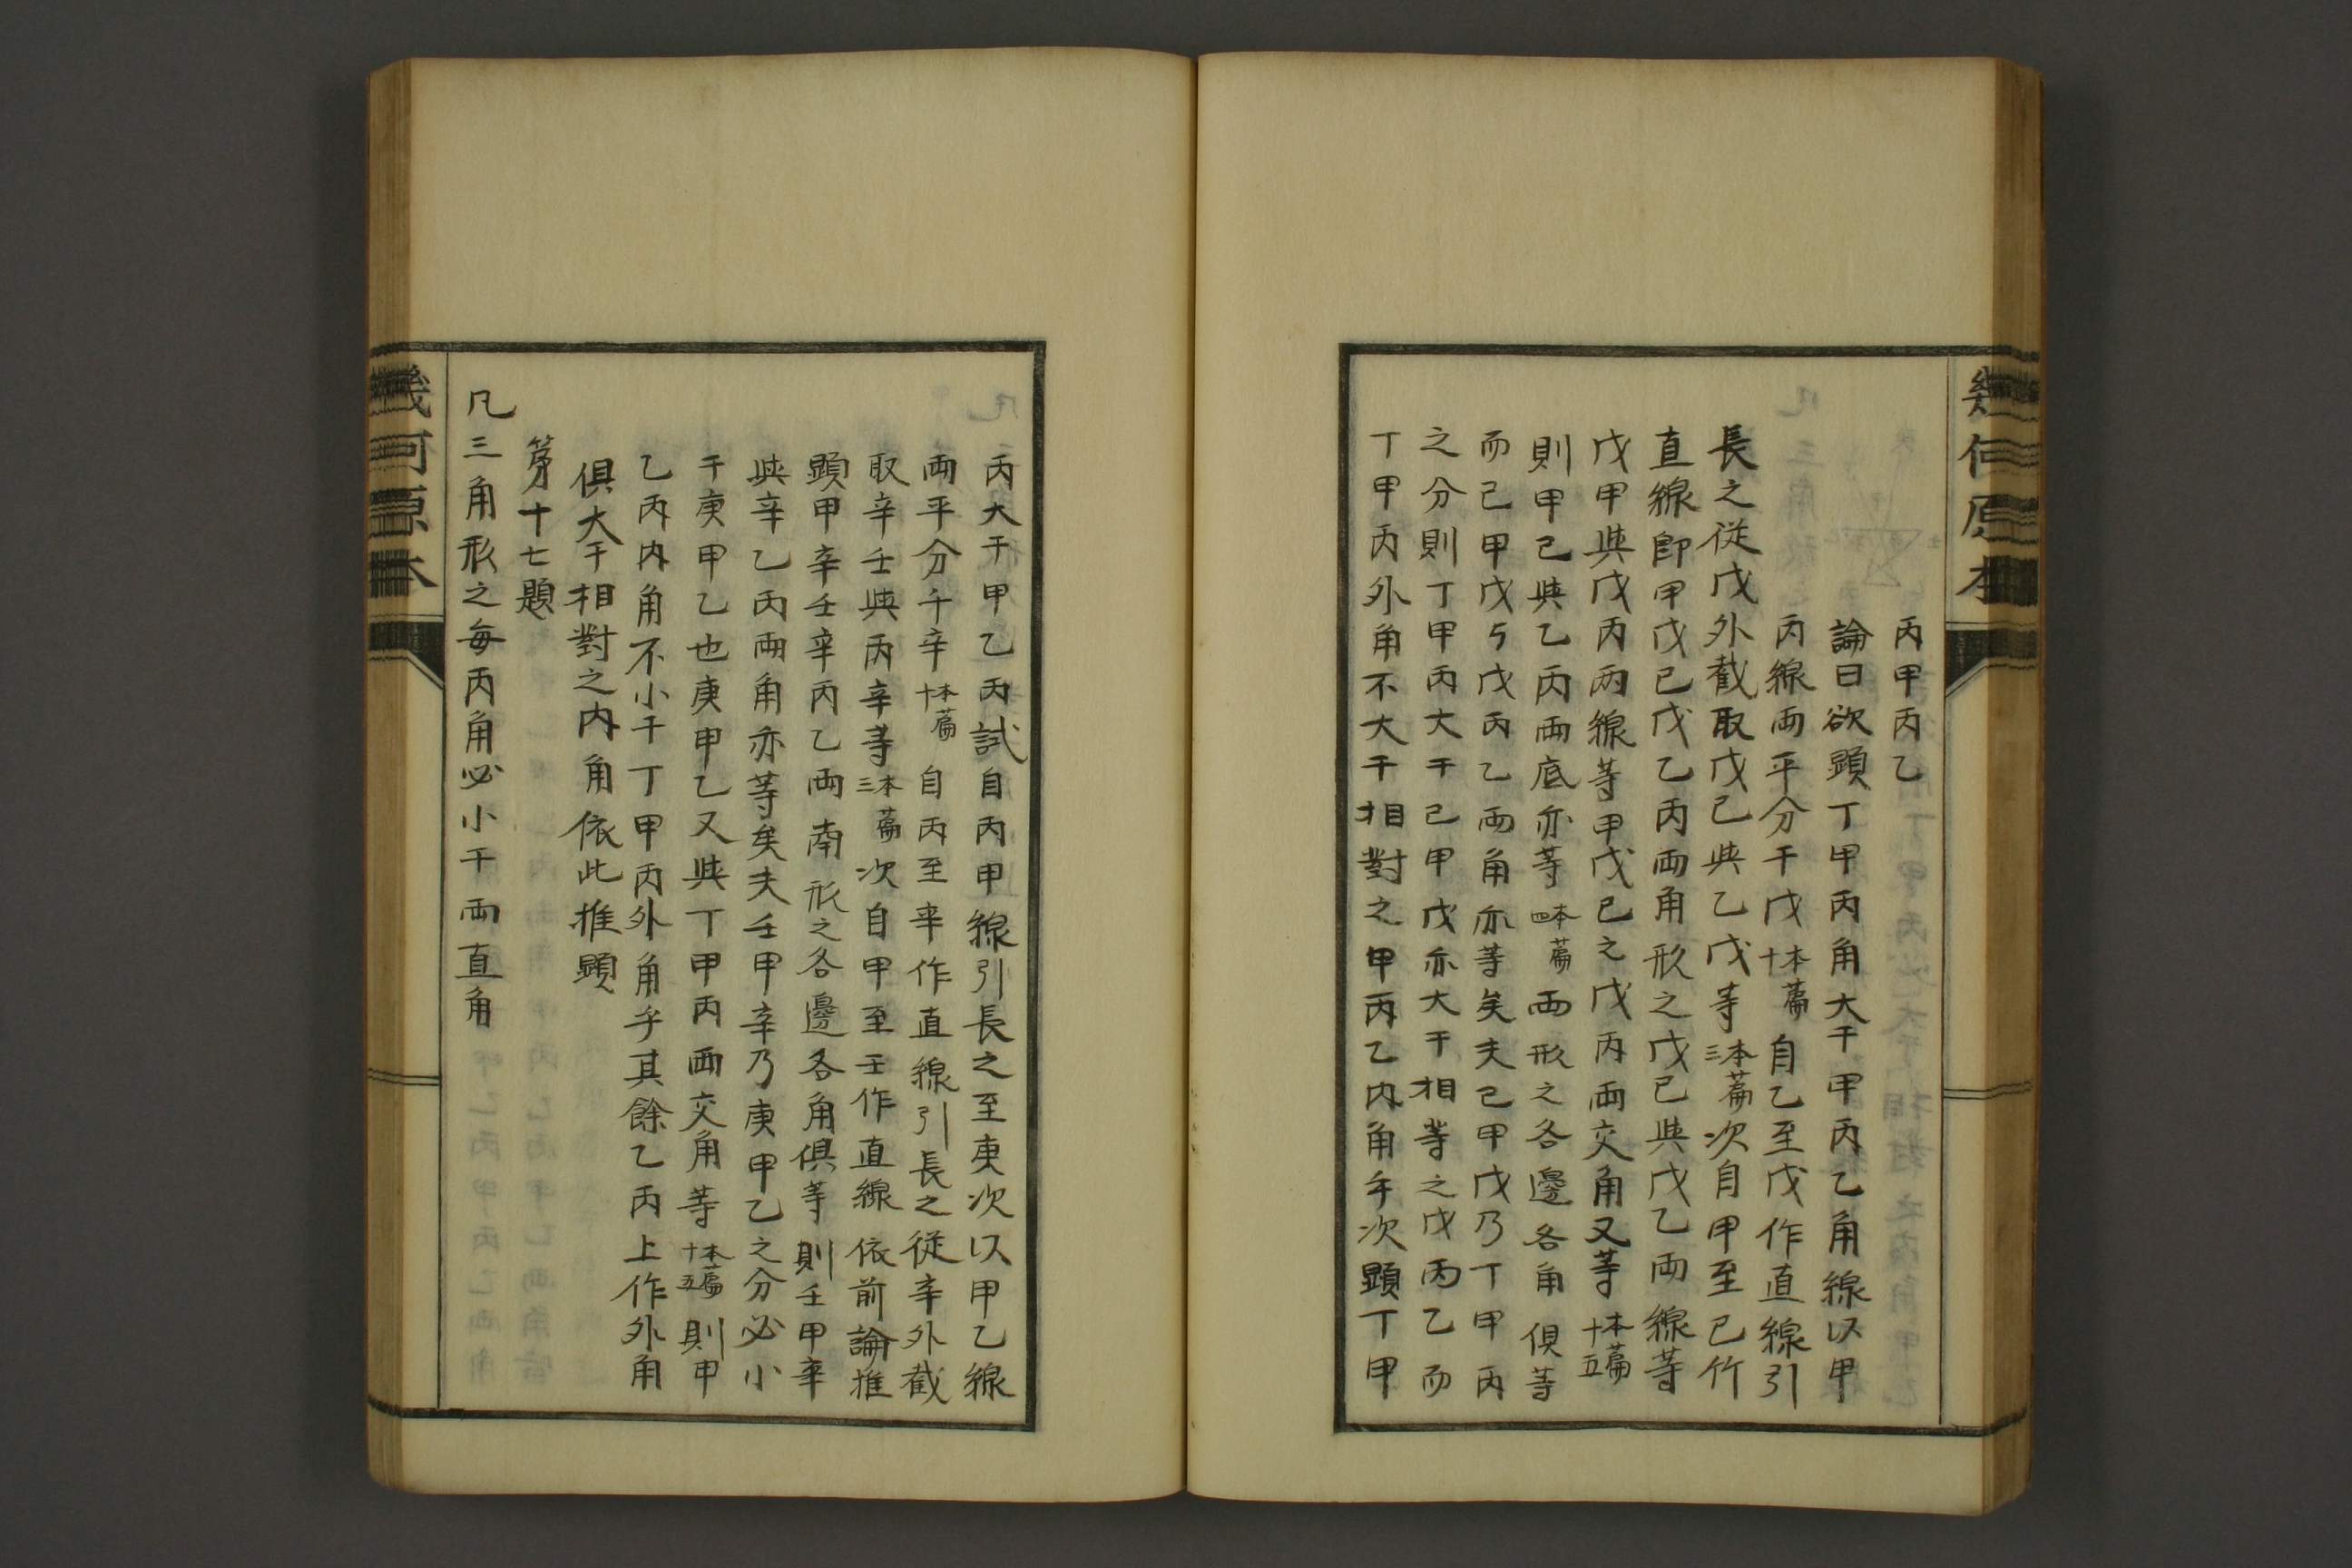 幾何原本
丙甲丙乙
論曰欲顕丁甲丙角大于甲丙乙角線以甲
丙線両平分于戊本篇十自乙至戊作直線引
長之従戊外截取戊己與乙戊等本篇三次自甲至己作
直線即甲戊己戊乙丙両角形之戊己與戊乙両線等
戊甲與戊丙両線等甲戊己之戊丙両交角又等本篇十五
則甲己與乙丙両底亦等本篇四両形之各邊各角俱等
而己甲戊与戊丙乙両角亦等矣夫己甲戊乃丁甲丙
之分則丁甲丙大于己甲戊亦大于相等之戊丙乙而
丁甲丙外角不大于相對之甲丙乙内角乎次顕丁甲
丙大于甲乙丙試自丙甲線引長之至庚次以甲乙線
両平分于辛本篇十自丙至辛作直線引長之従辛外截
取辛壬與丙辛等本篇三次自甲至壬作直線依前論推
顕甲辛壬辛丙乙両南形之各邊各角俱等則壬甲辛
與辛乙丙両角亦等矣夫壬甲辛乃庚甲乙之分必小
于庚甲乙也庚甲乙又與丁甲丙両交角等本篇十五則甲
乙丙内角不小于丁甲丙外角乎其餘乙丙上作外角
俱大于相對之内角依此推顕
第十七題
凡三角形之毎丙角必小于両直角
幾何原本